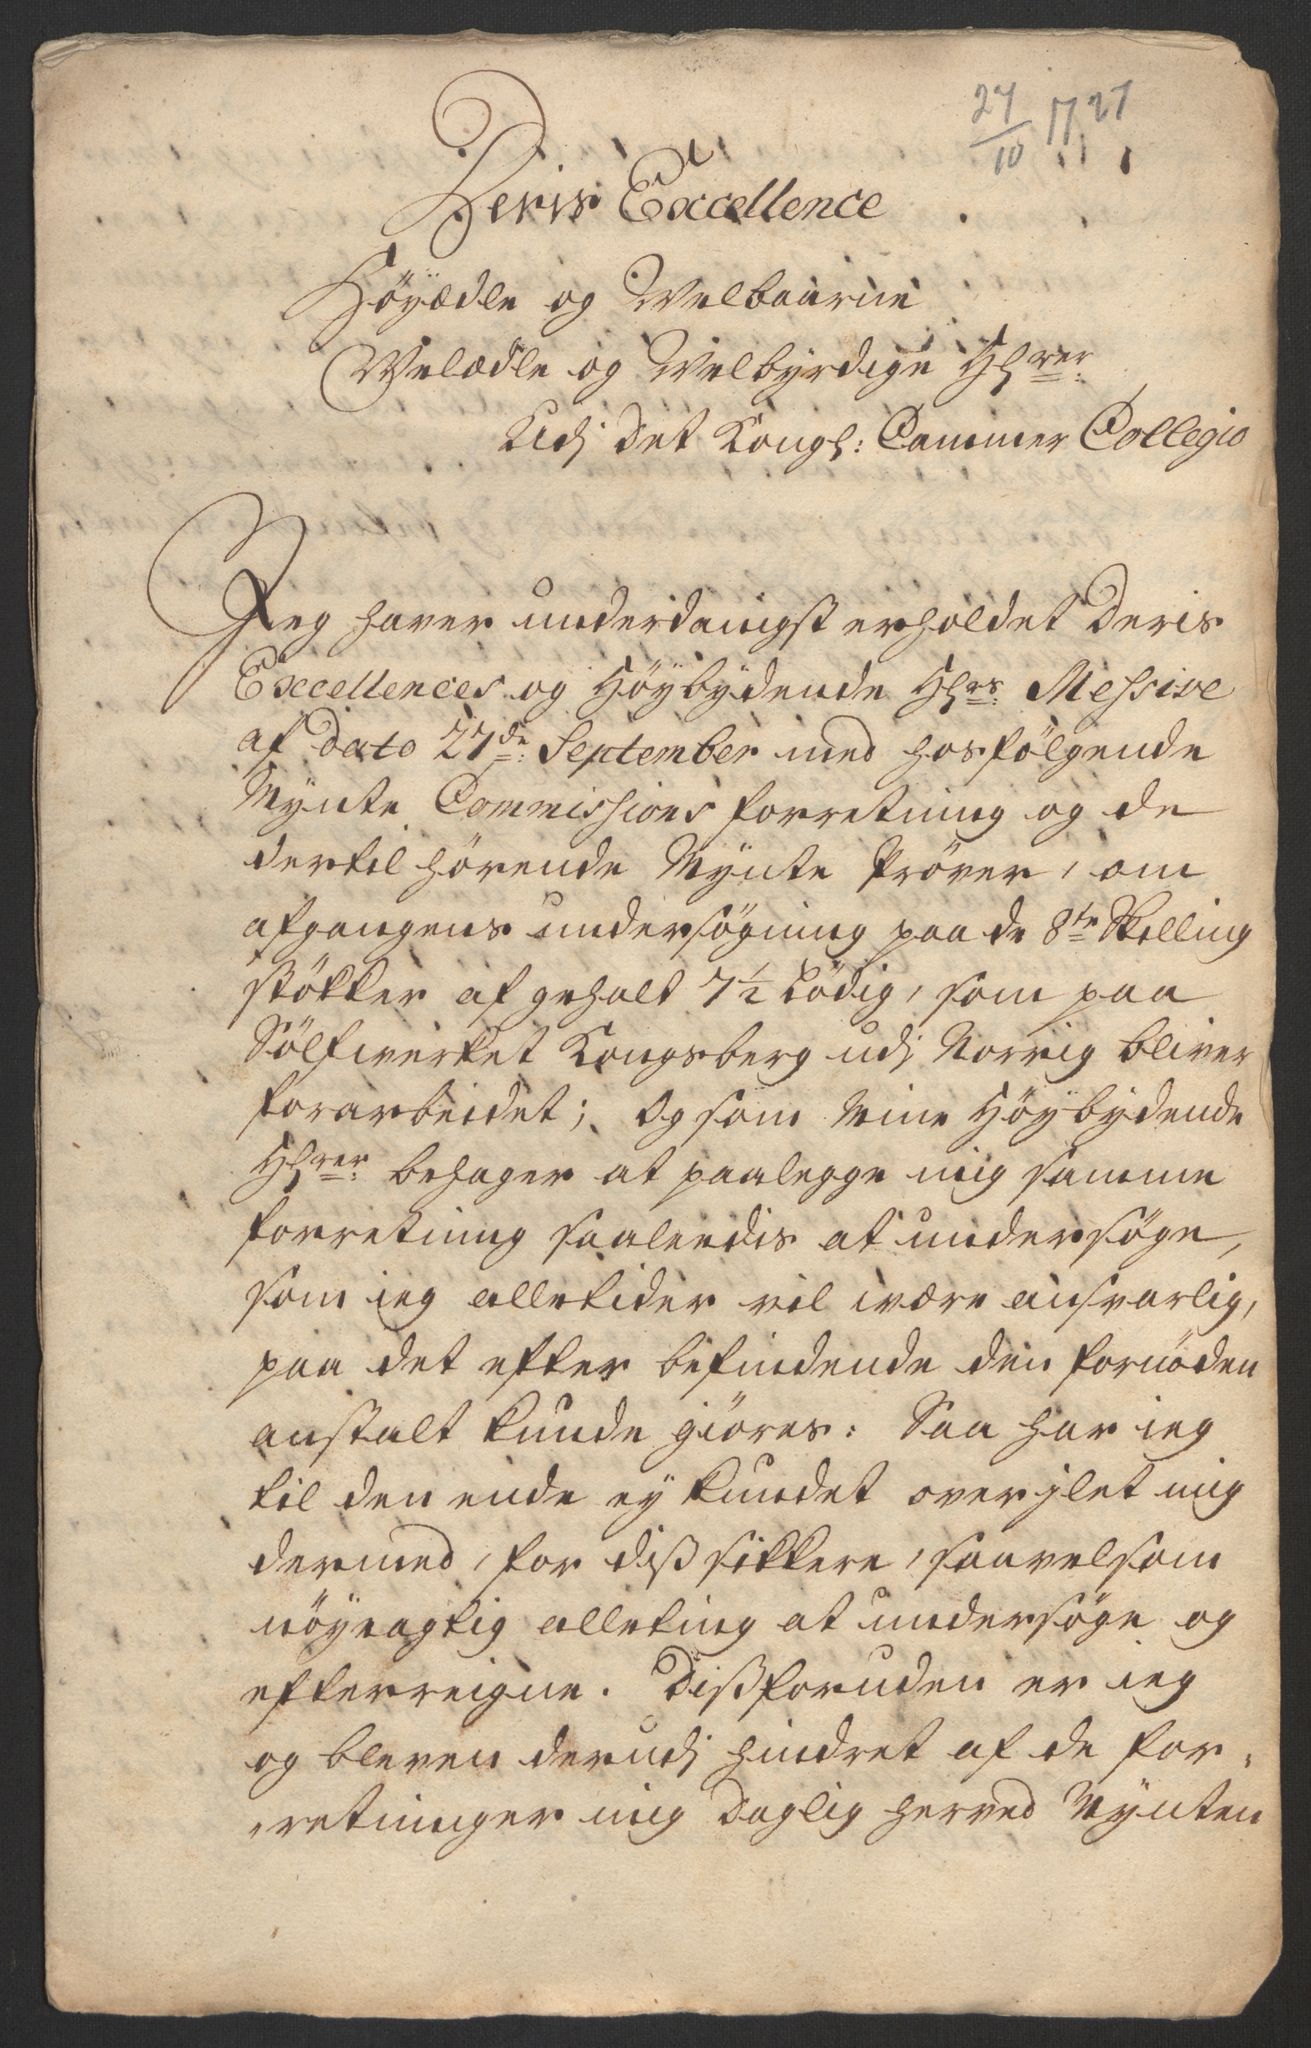 24/10 1727
Deris Excellence
Höyædle og Welbaarne
Velædle og Velbyrdige Hrer:
Udj det Kongl: Cammer Collegio
Jeg haver underdanigst erholdet Deris
Excellences og Höybydende Hrs: Messive
af Dato 27de: September med hosfölgende
Mynte Commissions forretning og de
dertil hörende Mynte Pröver, om
afgangens undersögning paa de 8te Skilling
stökker af gehalt 7½ Lödig, som paa
Sölfwerket Kongsberg udj Norrig bliver
forarbeidet; Og som Mine Höybydende
Hrer: behager at paalegge mig samme
forretning saaleedis at undersöge,
som ieg alletider vil være ansvarlig,
paa det efter befindende den fornöden
anstalt kunde giöres: Saa har ieg
til den ende ey kundet overjlet mig
dermed, for diß sikkere, saavelsom
nöyeagtig alleting at undersöge og
efterreigne. Dißforuden er ieg
og bleven derudj hindret af de for-
retninger mig Daglig herved Mynten